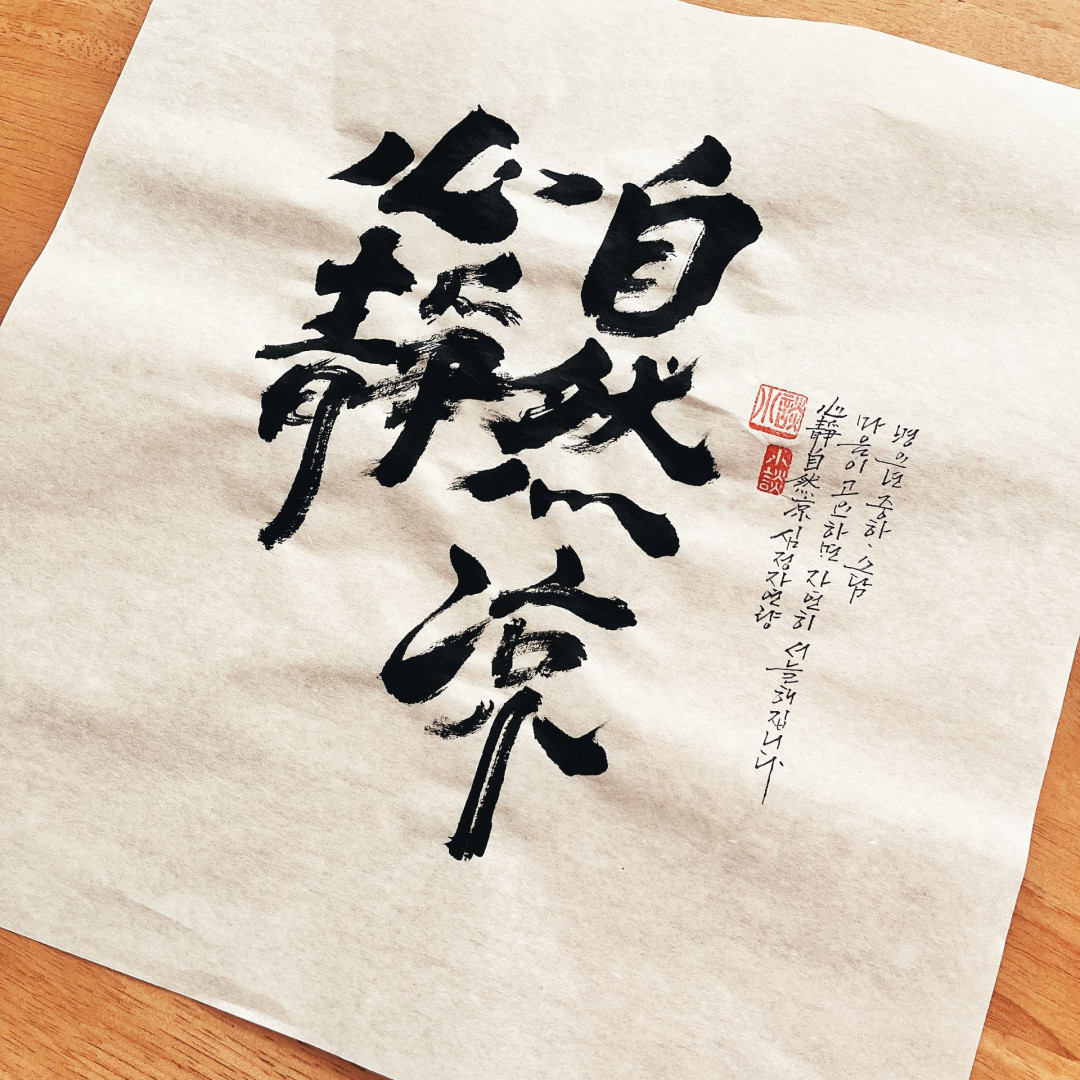 心靜
自然
凉
心靜自然凉 심정자연량
마음이 고요하면 자연히 서늘해집니다.
병오년 중하. 소담
小談
小談